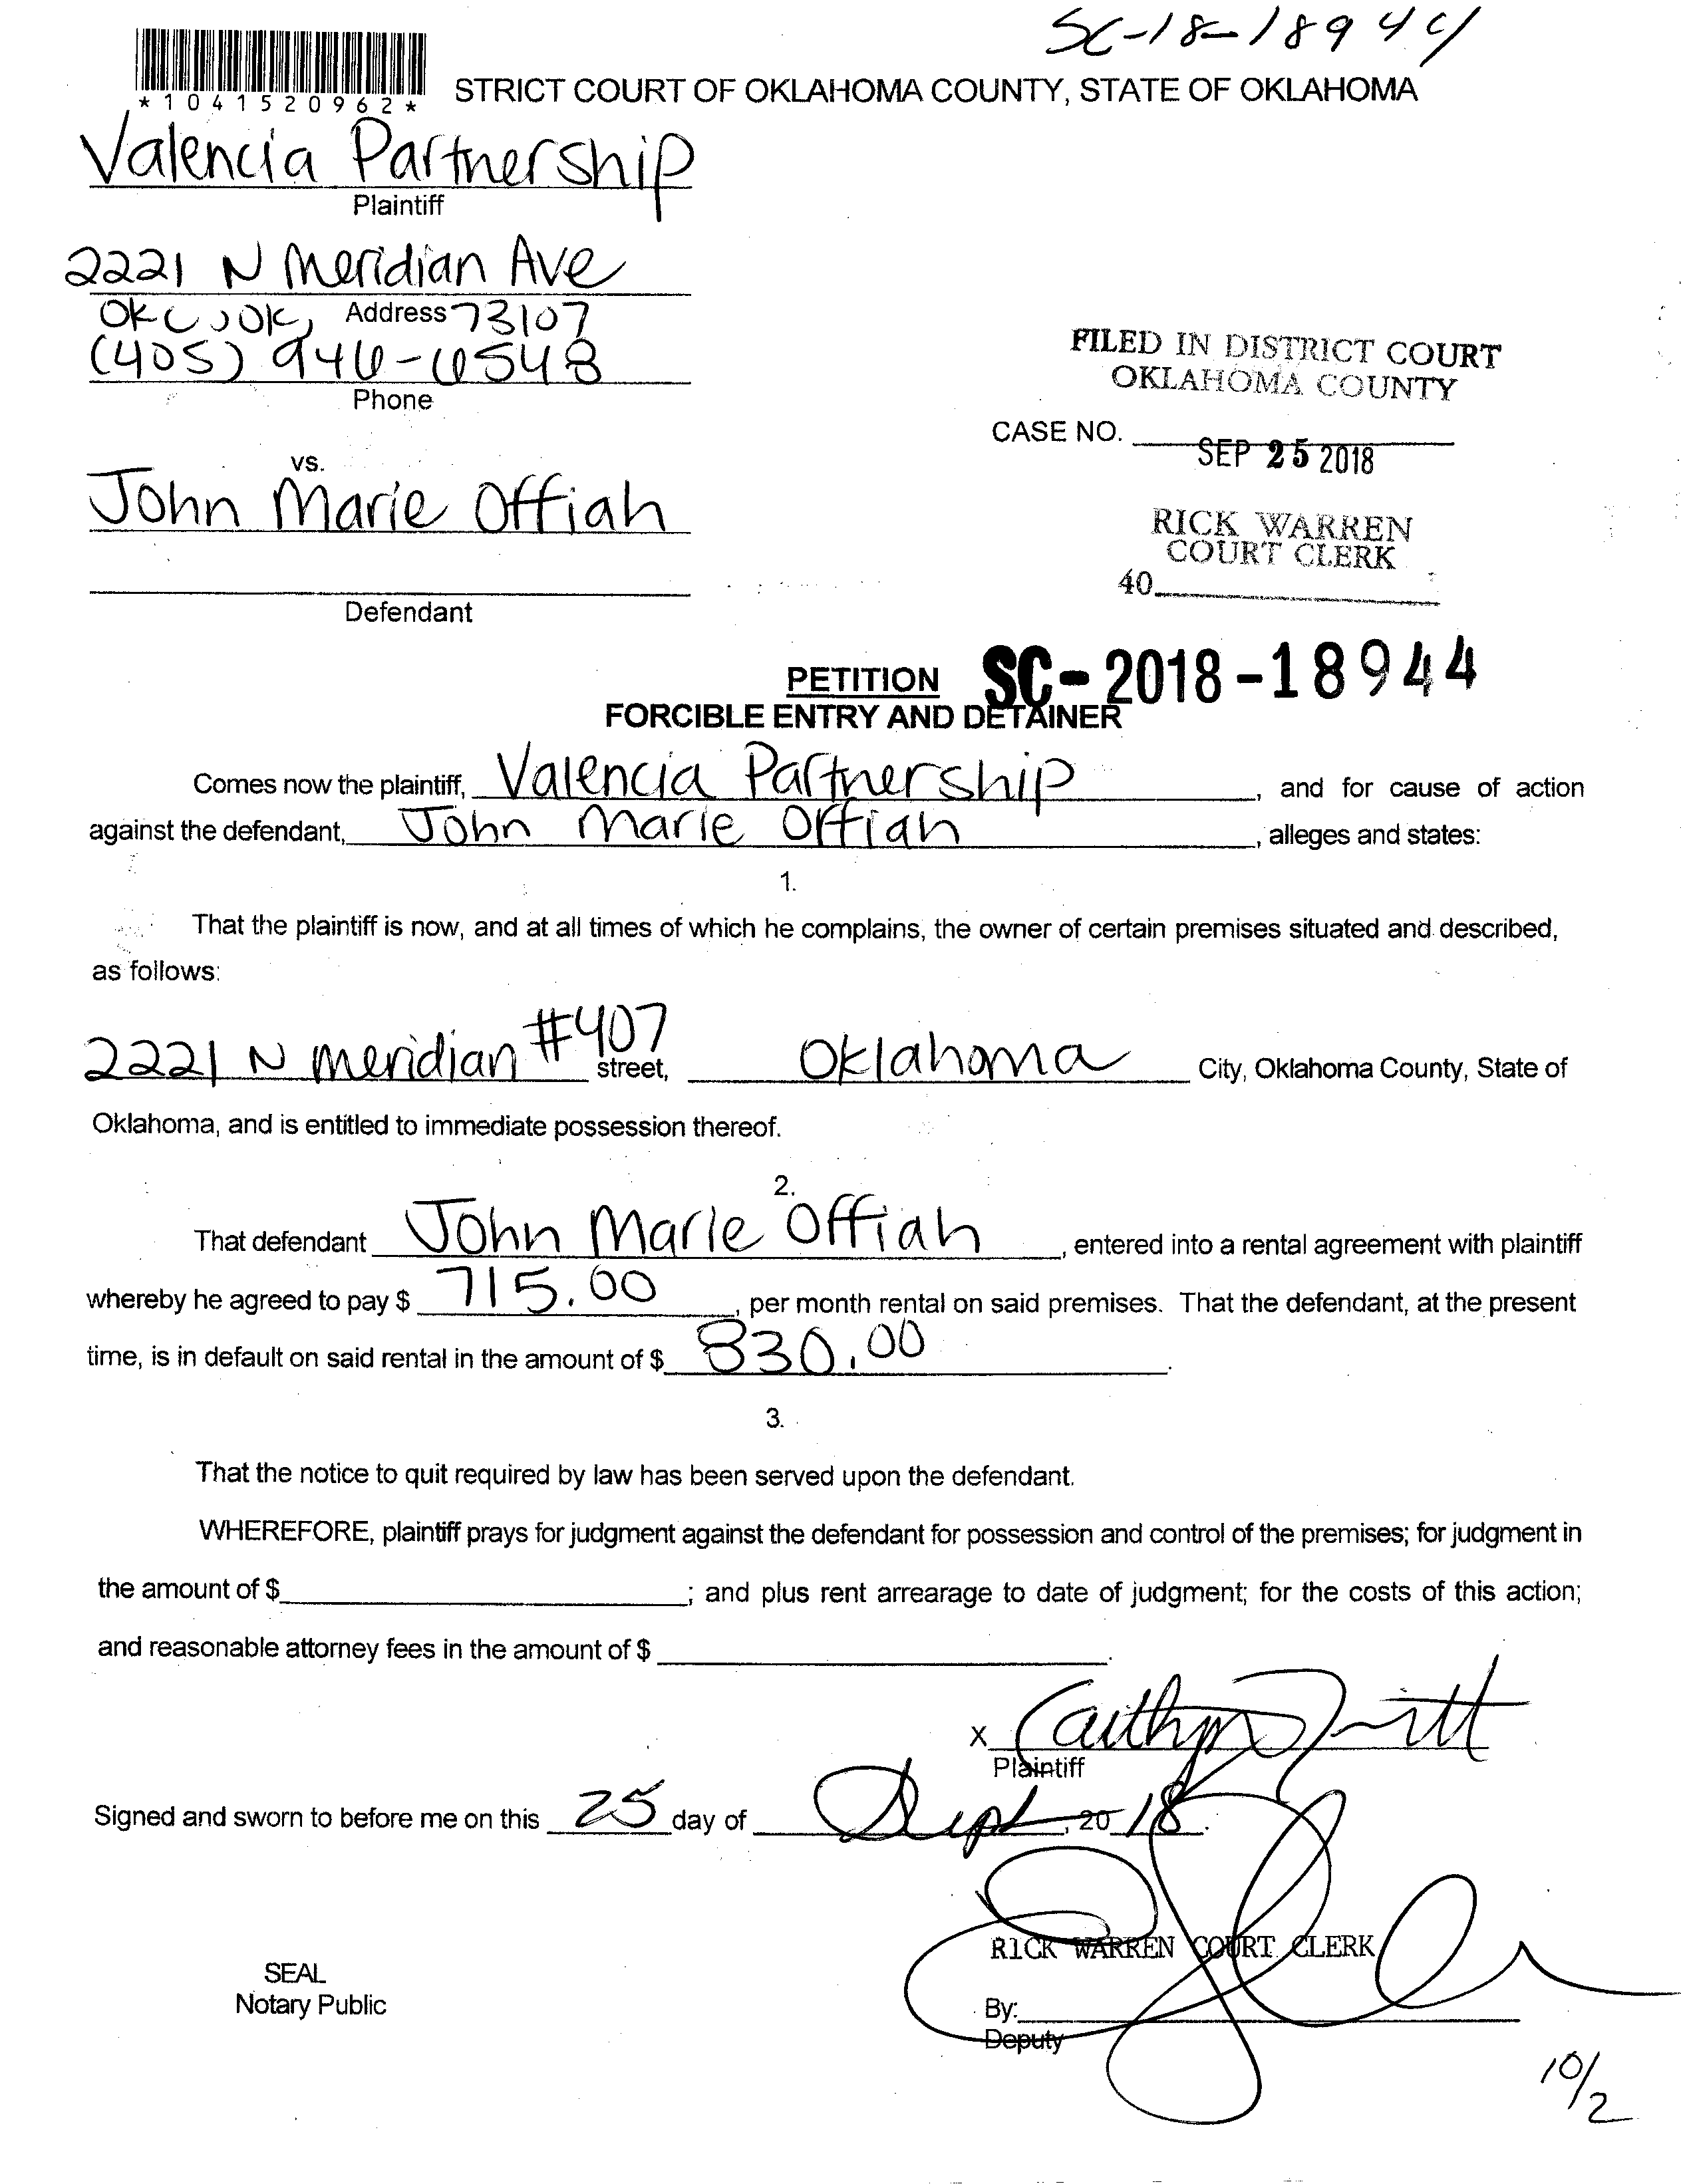 SC-18-18944
*1041520962*
STRICT COURT OF OKLAHOMA COUNTY, STATE OF OKLAHOMA
Valencia Partnership
Plaintiff
2221 N Meridian Ave
Address
OKC, OK, 73107
(405) 946-6548
Phone
FILED IN DISTRICT COURT
OKLAHOMA COUNTY
CASE NO.
SEP 25 2018
vs.
John Marie Offiah
RICK WARREN
COURT CLERK
40
Defendant
PETITION
SC-2018-18944
FORCIBLE ENTRY AND DETAINER
Comes now the plaintiff, Valencia Partnership, and for cause of action
against the defendant, John Marie Offiah, alleges and states:
1.
That the plaintiff is now, and at all times of which he complains, the owner of certain premises situated and described,
as follows:
2221 N meridian #407 street, Oklahoma City, Oklahoma County, State of
Oklahoma, and is entitled to immediate possession thereof.
2.
That defendant John Marie Offiah, entered into a rental agreement with plaintiff
whereby he agreed to pay $ 715.00, per month rental on said premises. That the defendant, at the present
time, is in default on said rental in the amount of $ 830.00.
3.
That the notice to quit required by law has been served upon the defendant.
WHEREFORE, plaintiff prays for judgment against the defendant for possession and control of the premises; for judgment in
the amount of $ ; and plus rent arrearage to date of judgment; for the costs of this action;
and reasonable attorney fees in the amount of $ .
X
Plaintiff
Signed and sworn to before me on this 25 day of Sept, 2018.
RICK WARREN COURT CLERK
SEAL
Notary Public
By:
Deputy
10/2